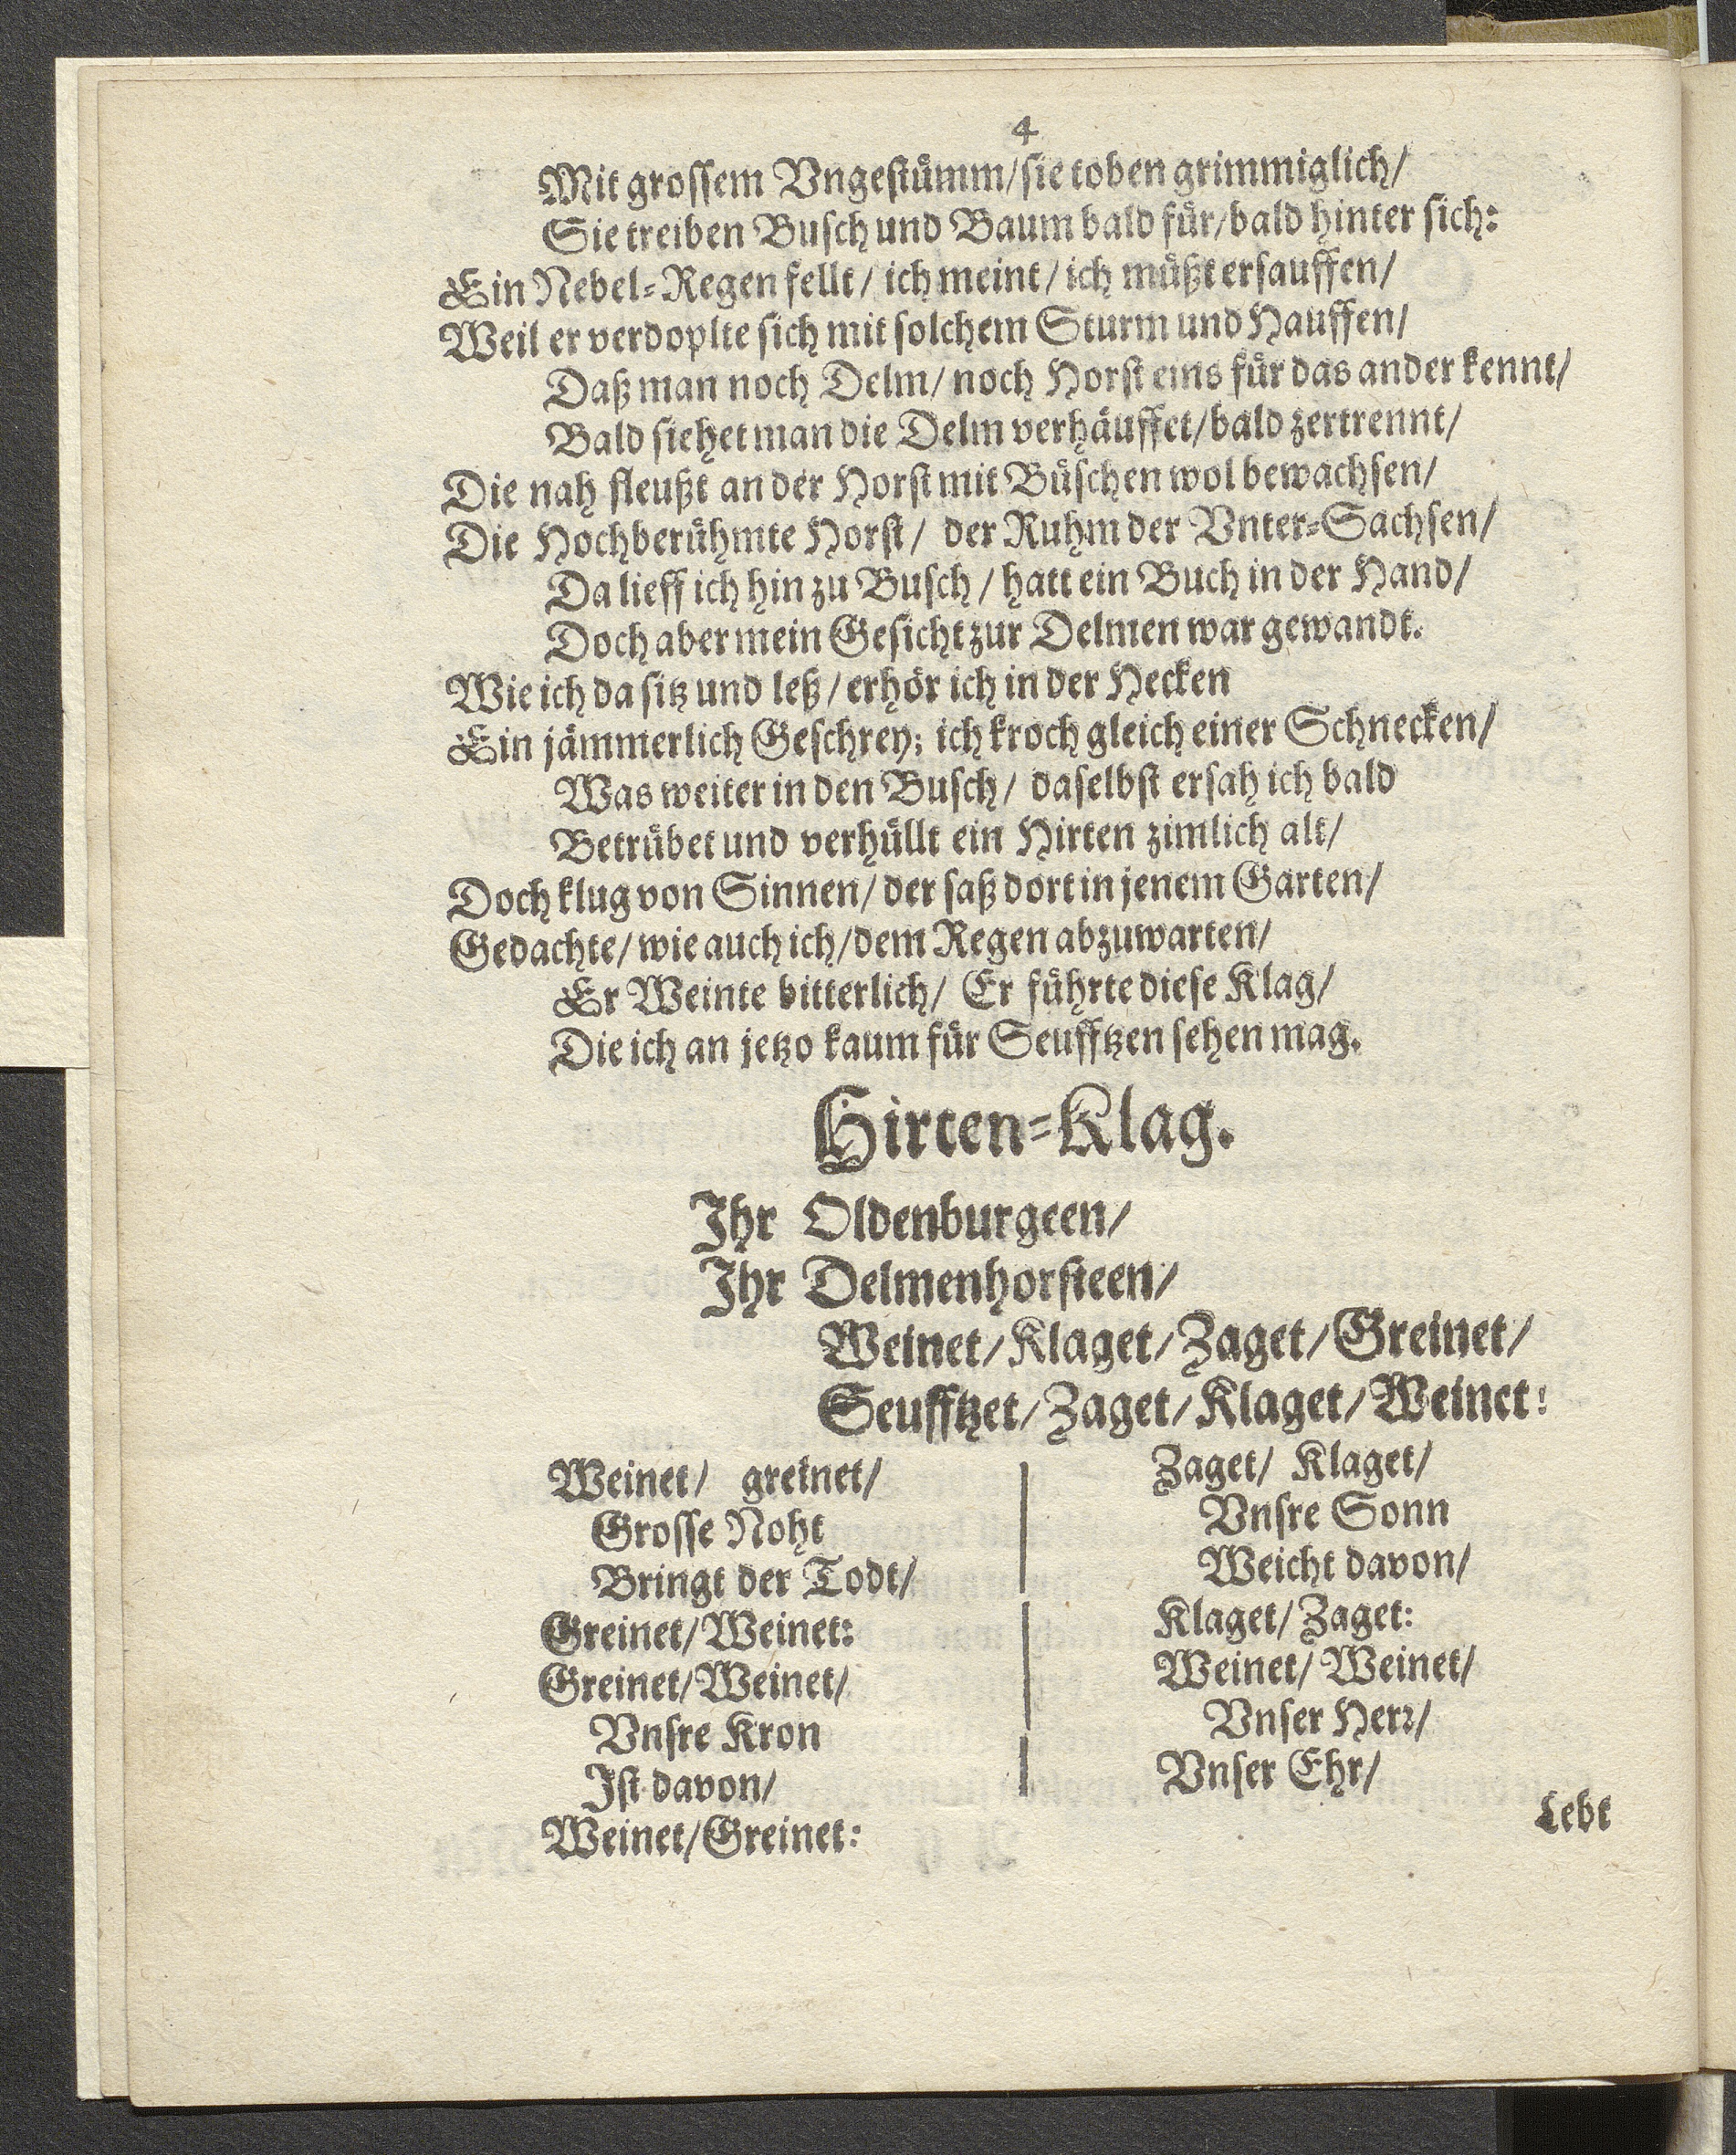 4
Mit grossem Vngestümm/ sie toben grimmiglich/
Sie treiben Busch und Baum bald für/ bald hinter sich:
Ein Nebel-Regen fellt/ ich meint/ ich müßt ersauffen/
Weil er verdoplte sich mit solchem Sturm und Hauffen/
Daß man noch Delm/ noch Horst eins für das ander kennt/
Bald siehet man die Delm verhäuffet/ bald zertrennt/
Die nah fleußt an der Horst mit Büschen wol bewachsen/
Die Hochberühmte Horst/ der Ruhm der Vnter-Sachsen/
Da lieff ich hin zu Busch/ hatt ein Buch in der Hand/
Doch aber mein Gesicht zur Delmen war gewandt.
Wie ich da sitz und leß/ erhör ich in der Hecken
Ein jämmerlich Geschrey; ich kroch gleich einer Schnecken/
Was weiter in den Busch/ daselbst ersah ich bald
Betrübet und verhüllt ein Hirten zimlich alt/
Doch klug von Sinnen/ der saß dort in jenem Garten/
Gedachte/ wie auch ich/ dem Regen abzuwarten/
Er Weinte bitterlich/ Er führte diese Klag/
Die ich an jetzo kaum für Seufftzen sehen mag.
Hirten-Klag.
Ihr Oldenburgeen/
Ihr Delmenhorsteen/
Weinet/ Klaget/ Zaget/ Greinet/
Seufftzet/ Zaget/ Klaget/ Weinet!
Weinet/ greinet/
Grosse Noht
Bringt der Todt/
Greinet/ Weinet:
Greinet/ Weinet/
Vnsre Kron
Ist davon/
Weinet/ Greinet:
Zaget/ Klaget/
Vnsre Sonn
Weicht davon/
Klaget/ Zaget:
Weinet/ Weinet/
Vnser Herr/
Vnser Ehr/
Lebt